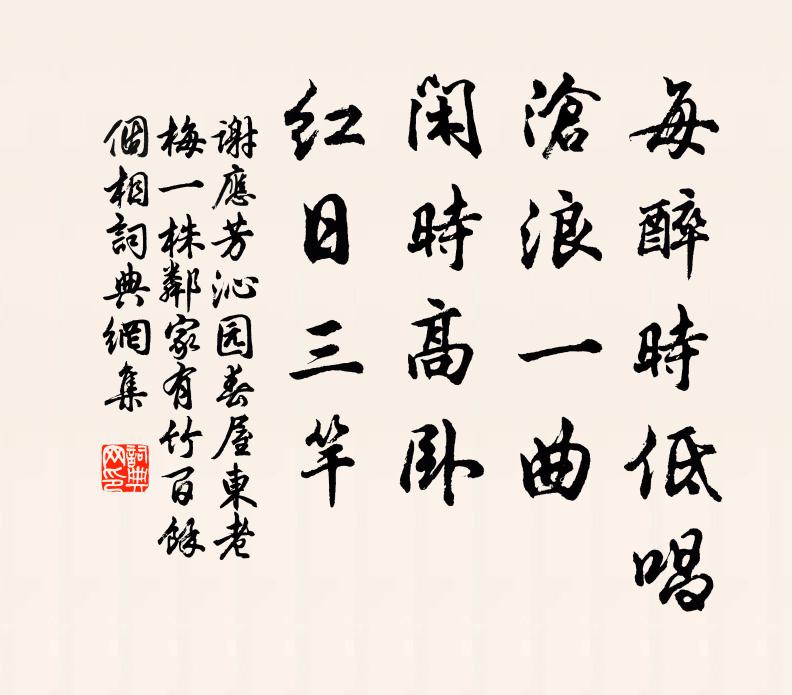 每醉時低唱
滄浪一曲
閑時高卧
红日三竿
謝應芳沁园春屋東老
梅一株鄰家有竹百餘
個相詞典網集
詞典
网印